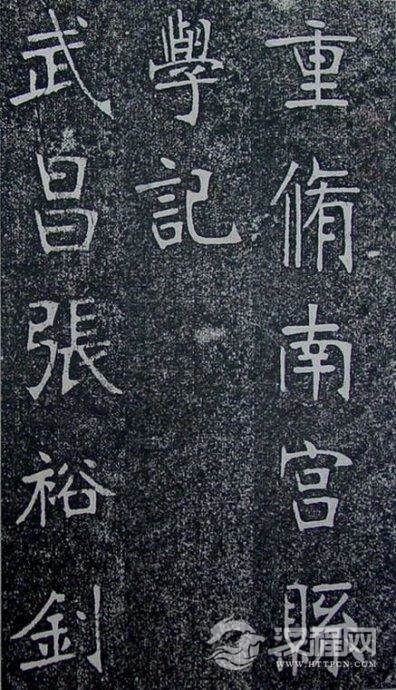 重脩南宫縣
學記
武昌張裕釗
汉程网
WWW.HTTPCN.COM